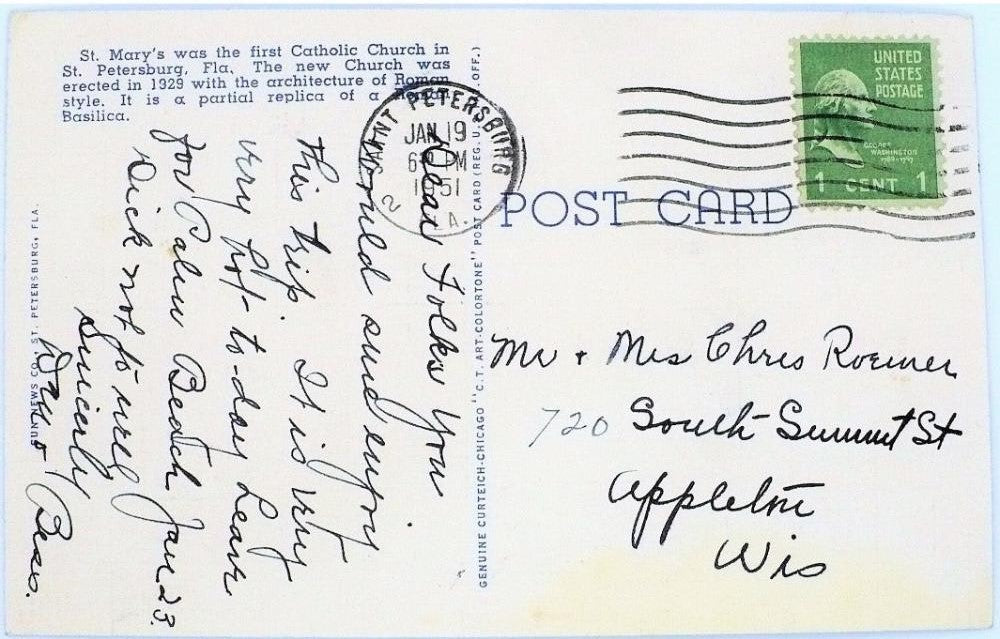 St. Mary's was the first Catholic Church in
St. Petersburg, Fla. The new Church was
erected in 1929 with the architecture of Roman
style. It is a partial replica of a Roman
Basilica.
SAINT PETERSBURG
JAN 19
6 PM
1951
2
FLA.
UNITED
STATES
POSTAGE
GEORGE
WASHINGTON
1789-1797
1 CENT 1
POST CARD
Dear Folks You
Would sure enjoy
this trip. It is very
very hot to-day Leave
for Palm Beach Jan 23.
Dick not to well
Sincerly
Bess.
Mr + Mrs Chris Roemer
720 South Summit St
Appleton
Wis
SUN NEWS CO., ST. PETERSBURG, FLA.
GENUINE CURTEICH-CHICAGO "C.T. ART-COLORTONE" POST CARD (REG. U. OFF.)